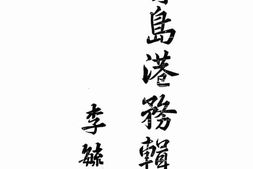 島港務輯
李毓